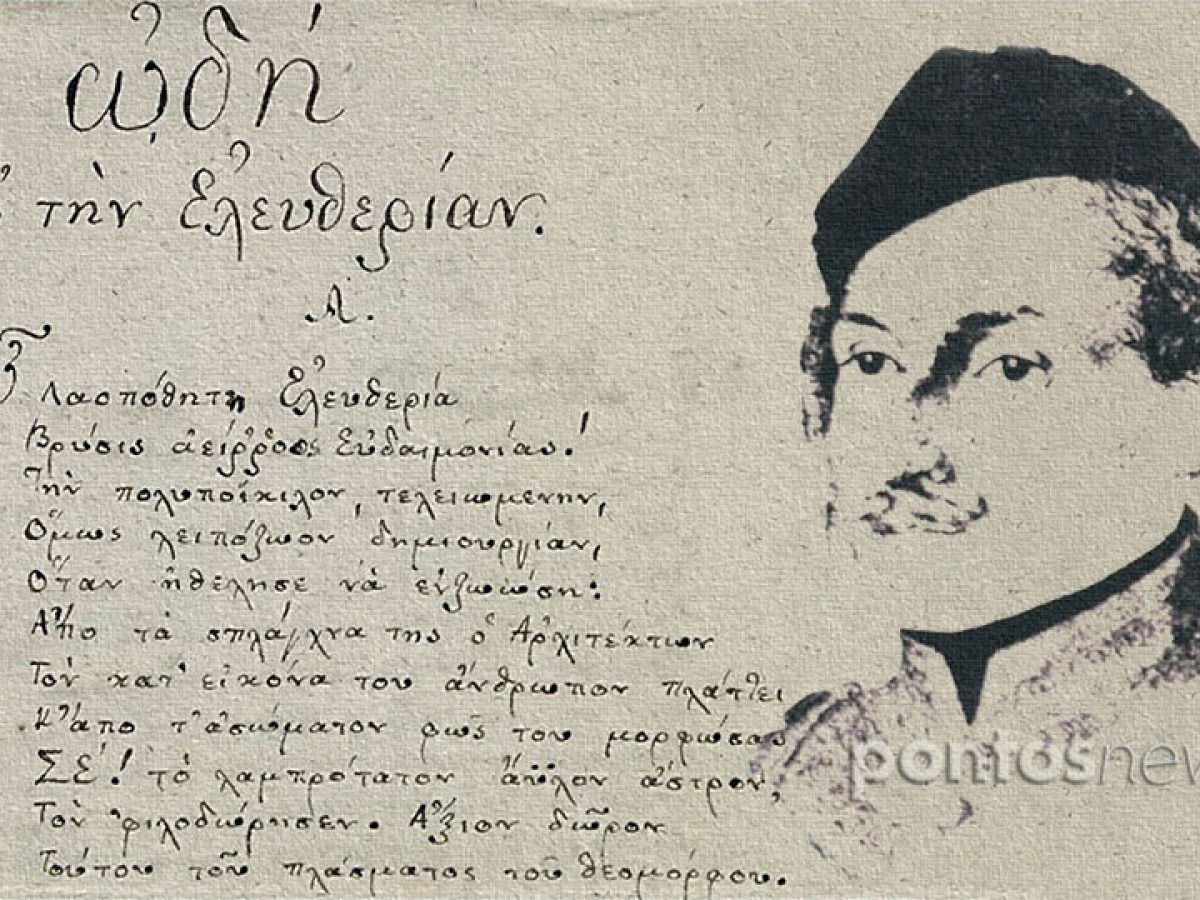 ᾠδὴ
τὴν Ἐλευθερίαν.
Α.
Λασπόθητη Ἐλευθερία
Βρύσις ἀείῤῥοος Εὐδαιμονίας!
Τὴν πολυποίκιλον, τελειωμενην,
Ὅμως λειπόζωον δημιουργίαν,
Ὅταν ἠθελησε νὰ εὐζωώση:
Ἀπο τὰ σπλάγχνα της ὁ Ἀρχιτέκτων
Τὸν κατ' εἰκόνα του ἄνθρωπον πλάττει
Κ' ἀπο τ' ἀσώματον φῶς του μορφώσας
ΣΕ'! τὸ λαμπρότατον ἄϋλον ἄστρον,
Τὸν φιλοδώρησεν. Ἄξιον δῶρον
Τούτον τοῦ πλάσματος τοῦ θεομόρφου.
pontosnew